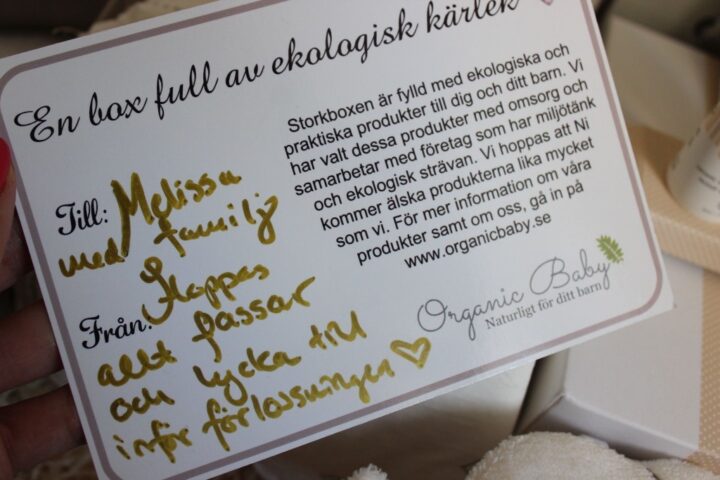 En box full av ekologisk kärlek
Storkboxen är fylld med ekologiska och
praktiska produkter till dig och ditt barn. Vi
har valt dessa produkter med omsorg och
samarbetar med företag som har miljötänk
och ekologisk strävan. Vi hoppas att Ni
kommer älska produkterna lika mycket
som vi. För mer information om våra
produkter samt om oss, gå in på
www.organicbaby.se
Till: Melissa
med familj
Från: Hoppas
allt passar
och lycka till
inför förlossningen ♡
Organic Baby
Naturligt för ditt barn